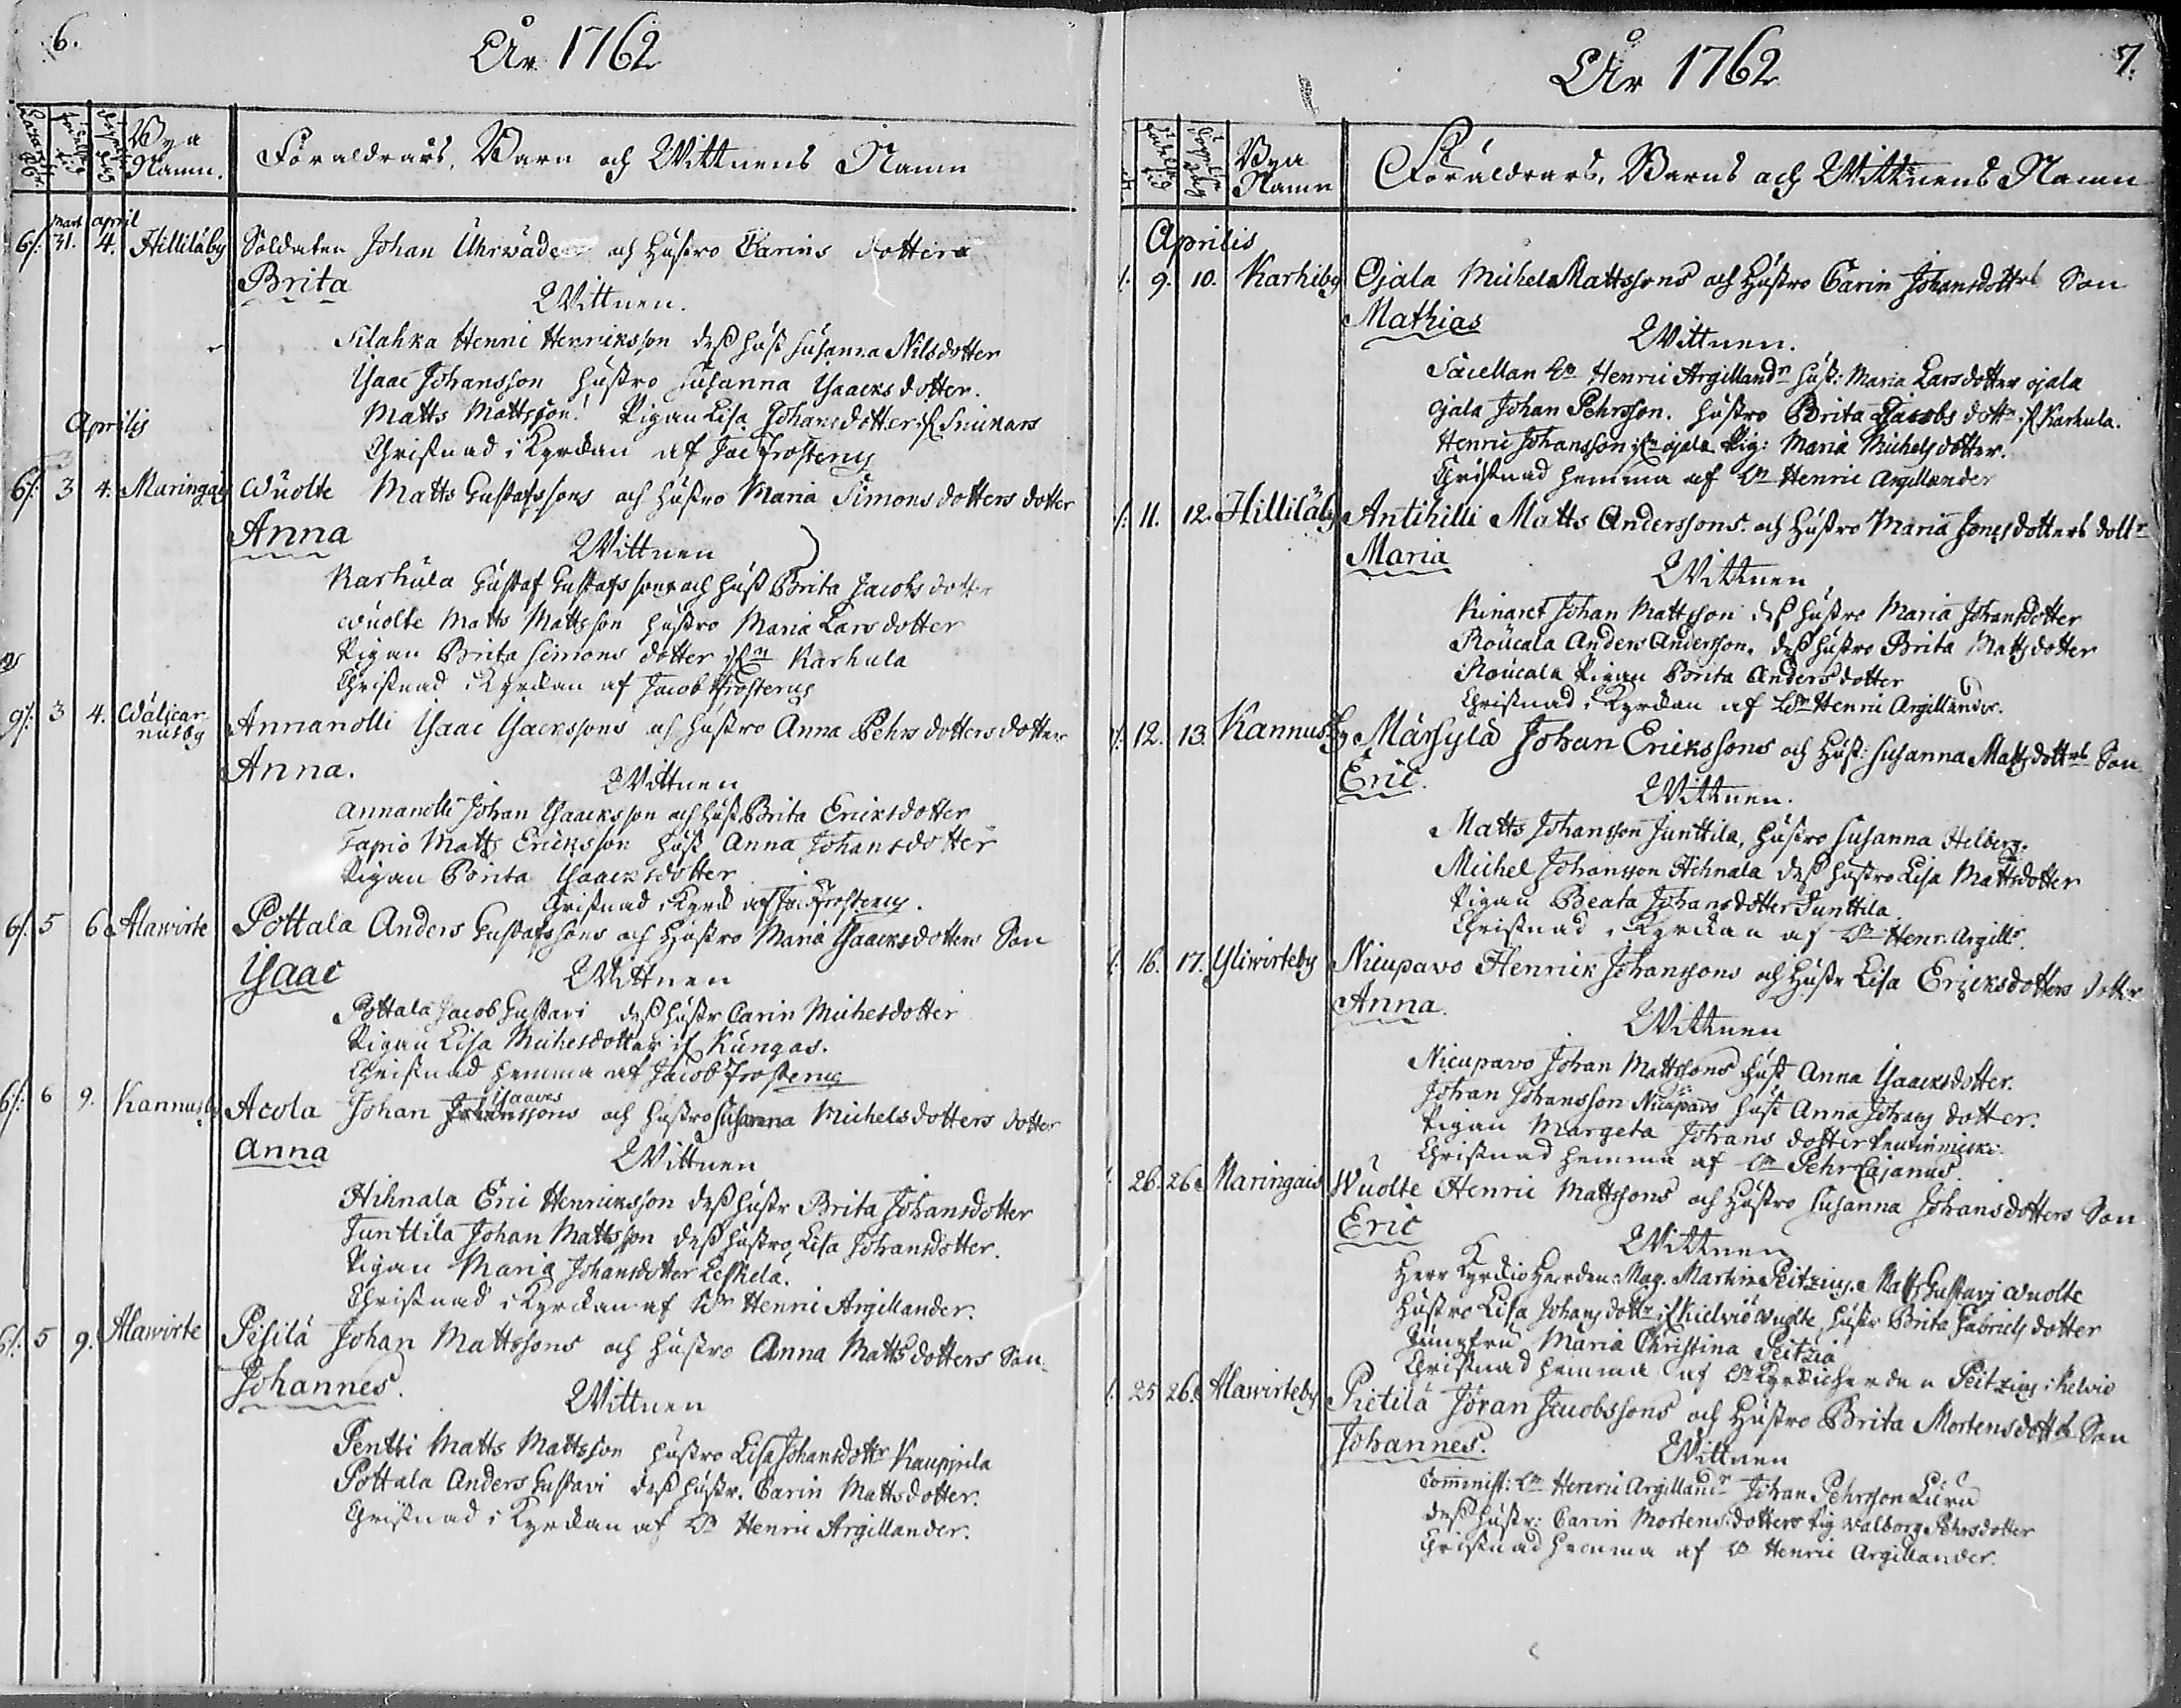 6.
År 1762
Bya Namn.
Föraldrars, Barn och Wittnens Namn
Mart april
6/. 31. 4. Hilliläby Soldaten Johan Uhrväder och Hustro Carins dotter
Brita
Wittnen.
Filahka Henric Henriksson dess hust Susanna Nilsdotter
Isaac Johansson hustro Susanna Isaacs dotter.
Matts Mattsson. Pigan Lisa Johansdotter Snickars
Christnad i Kyrckan af Jac Frosterus
Aprilis
6/. 3 4. Maringais Wuolte Matts Gustafssons och hustro Maria Simons dotters dotter
Anna
Wittnen
Karhula Gustaf Gustafssons och hust Brita Jacobs dotter
Wuolte Matts Mattsson hustro Maria Lars dotter
Pigan Brita Simons dotter Karhula
Christnad i Kyrckan af Jacob Frosterus
9/. 3 4. Wälicannusby Annanolli Isaac Isacssons och hustro Anna Pehrs dotters dotter
Anna.
Wittnen
Annanolli Johan Isaacksson och hust Brita Ericksdotter
Tapio Matts Ericksson hust Anna Johansdotter
Pigan Brita Isaacksdotter
Christnad i Kyrck af Jac Frosterus.
6/. 5 6 Alawirte Pottala Anders Gustafssons och Hustro Maria Isaacksdotters Son
Isaac
Wittnen
Pottala Jacob Gustavi dess hustr Carin Michelsdotter
Pigan Lisa Michelsdotter Kungas.
Christnad hemma af Jacob Frosterus
6/. 6 9. Kannusby Acola Johan Isaacs Johanssons och hustro Susanna Michelsdotters dotter
Anna
Wittnen
Hihnala Eric Henricksson dess hustr Brita Johansdotter
Junttila Johan Mattsson dess hustro Lisa Johansdotter.
Pigan Maria Johansdotter Leskelä.
Christnad i Kyrckan af Hr Henric Argillander.
6/. 5 9. Alawirte Pesilä Johan Mattssons och hustro Anna Mattsdotters Son
Johannes.
Wittnen
Pentti Matts Mattsson hustro Lisa Johansdotter Kauppila
Pottala Anders Gustavi dess hustr. Carin Mattsdotter.
Christnad i Kyrckan af Hr Henric Argillander.
År 1762
7.
Bya Namn
Föräldrars, Barns och Wittnens Namn
Aprilis
9. 10. Karhiby Ojala Michel Mattssons och Hustro Carin Johansdotters Son
Mathias
Wittnen.
Sacellan Hr Henric Argillandr hust: Maria Larsdotter ojala
Ojala Johan Pehrsson. hustro Brita Jacobs dottr Karhula.
Henric Johansson ojala Pig: Maria Michels dotter.
Christnad hemma af Hr Henric Argillander
11. 12. Hilliläby Antihilli Matts Anderssons och hustro Maria Jonsdotters dottr
Maria
Wittnen
Kinaret Johan Mattsson dess hustro Maria Johansdotter
Roucala Anders Andersson. dess hustro Brita Mattsdotter
Roucala Pigan Brita Andersdotter
Christnad i Kyrckan af Hr Henric Argillander.
12. 13. Kannusby Märsylä Johan Erickssons och hust: Susanna Mattsdotters Son
Eric.
Wittnen.
Matts Johansson Junttila, hustro Susanna Helberg.
Michel Johansson Hihnala dess hustro Lisa Mattsdotter
Pigan Beata Johansdotter Junttila.
Christnad i Kyrckan af Hr Henr. Argillr.
16. 17. Yliwirteby Nicupavo Henrick Johanssons och Hustr Lisa Ericksdotters dotter
Anna.
Wittnen
Nicupavo Johan Mattssons hust Anna Isaacksdotter.
Johan Johansson Nicupavo hust Anna Johans dotter.
Pigan Margeta Johans dotter
Christnad hemma af Hr Pehr Cajanus.
26. 26 Maringais Wuolte Henric Mattssons och hustro Susanna Johansdotters Son
Eric
Wittnen
Herr Kyrckioherden Mag. Martin Peitzius. Matts Gustavi Wuolte
hustro Lisa Johans dottr Kielviö Wuolte hustr Brita Gabriels dotter
Jungfru Maria Christina Peitzia
Christnad hemma af Hr Kyrckioherden Peitzius i Kelvio
25 26. Alawirteby Pietilä Jöran Jacobssons och Hustro Brita Mortensdotters Son
Johannes.
Wittnen
Comminist: Hr Henric Argillandr Johan Pehrsson Luru
dess hustr: Carin Mortens dotter Pig Walborg Pehrsdotter
Christnad hemma af Hr Henric Argillander.